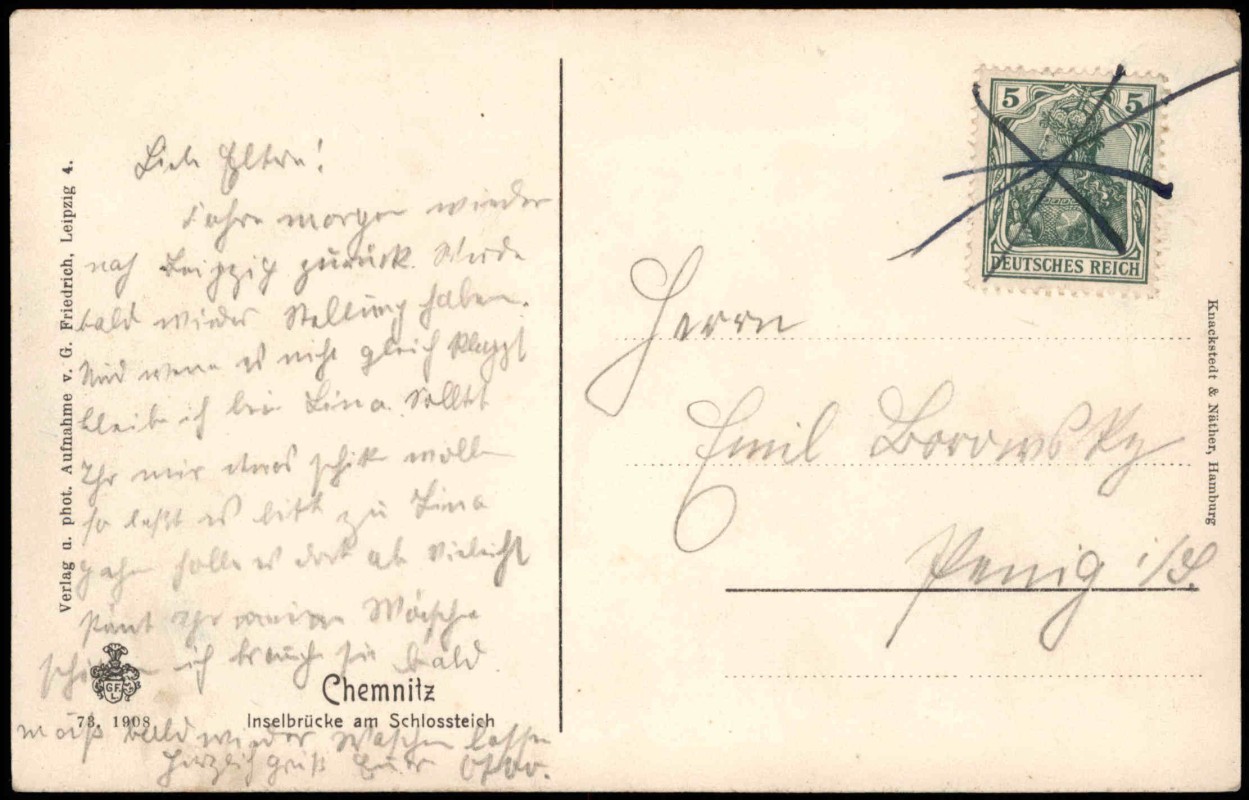 Liebe Eltern!
Fahre morgen wieder
nach Leipzig zurück. Werde
bald wieder Stellung haben.
Und wenn es nicht gleich klappt
bleibe ich bei Lina. Solltet
Ihr mir etwas schiken wollen
so laßt es bitte zu Lina
gehn hole es dort ab vieleicht
könnt Ihr meine Wäsche
ich brauch sie bald
muß bald wieder Waschen lassen
Herzlich grüß Euer Otto.
Verlag u. phot. Aufnahme v. G. Friedrich, Leipzig 4.
G F
L
73. 1908
Chemnitz
Inselbrücke am Schlossteich
5 5
DEUTSCHES REICH
Herrn
Emil Borowsky
Penig i/S.
Knackstedt & Näther, Hamburg